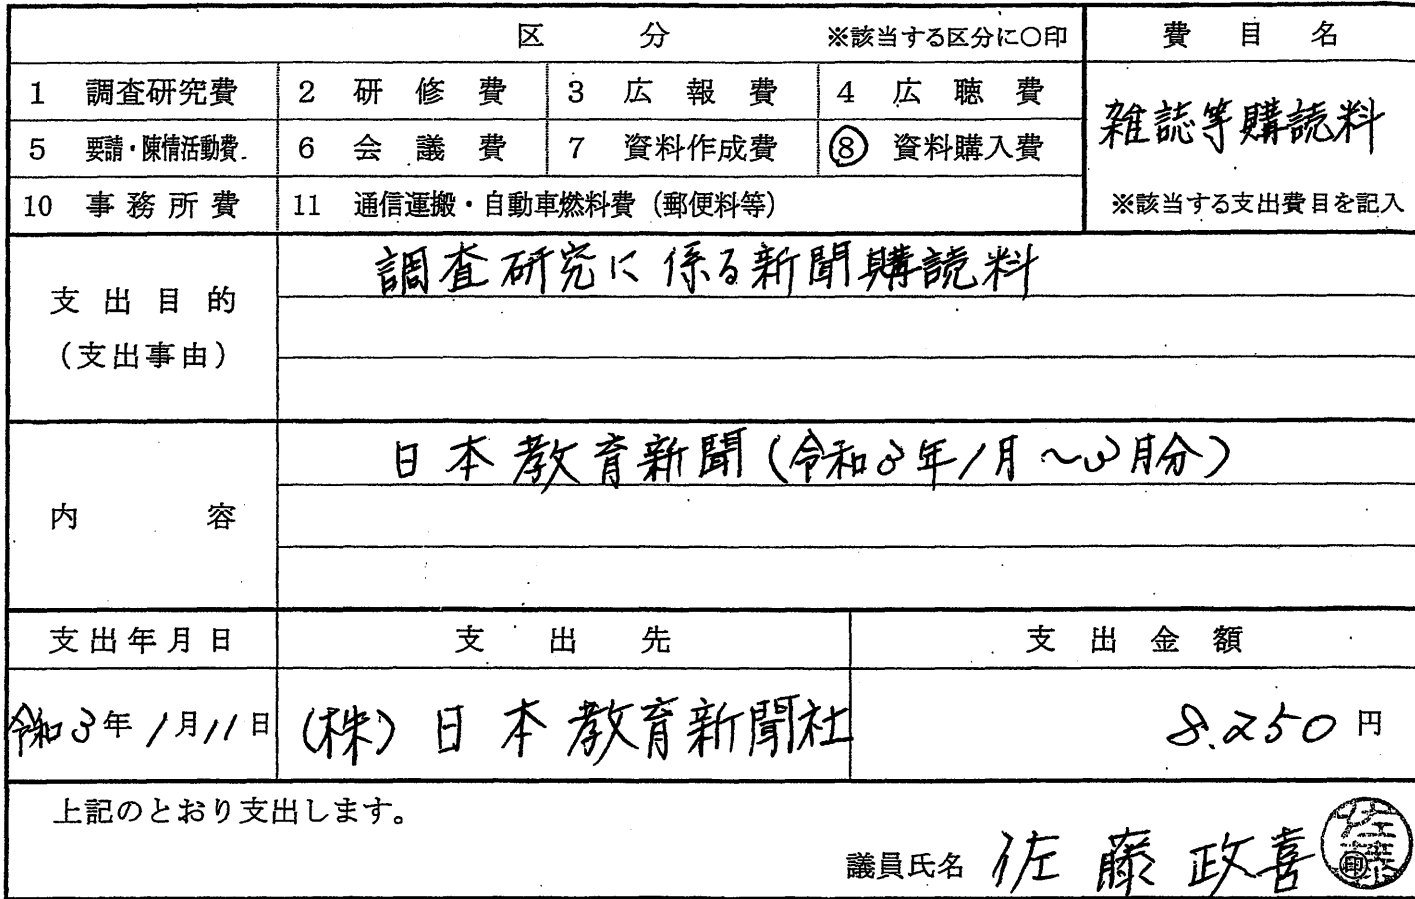 区 分 ※該当する区分に〇印 費 目 名
1 調査研究費 2 研 修 費 3 広 報 費 4 広 聴 費
雑誌等購読料
5 要請・陳情活動費 6 会 議 費 7 資料作成費 ⑧ 資料購入費
10 事務所費 11 通信運搬・自動車燃料費（郵便料等） ※該当する支出費目を記入
調査研究に係る新聞購読料
支出目的
（支出事由）
日本教育新聞(令和3年1月～3月分)
内 容
支出年月日 支 出 先 支 出 金 額
令和3年1月11日 (株)日本教育新聞社 8.250円
上記のとおり支出します。
議員氏名 佐藤政喜 佐藤 印